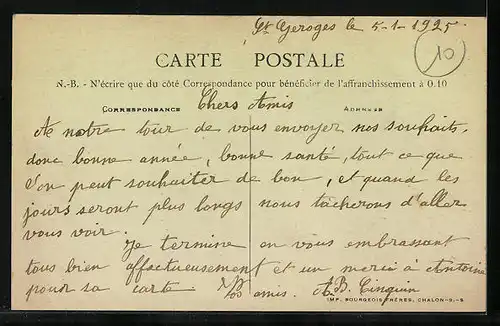 St Geroges le 5-1-1925
10
CARTE POSTALE
N.-B. - N'écrire que du côté Correspondance pour bénéficier de l'affranchissement à 0.10
CORRESPONDANCE Chers Amis ADRESSE
A notre tour de vous envoyer nos souhaits,
donc bonne année, bonne santé, tout ce que
l'on peut souhaiter de bon, et quand les
jours seront plus longs nous tâcherons d'aller
vous voir.
Je termine en vous embrassant
tous bien affectueusement et un merci à Antoine
pour sa carte Vos amis. A.B.
IMP. BOURGEOIS FRÈRES, CHALON-S.-S.